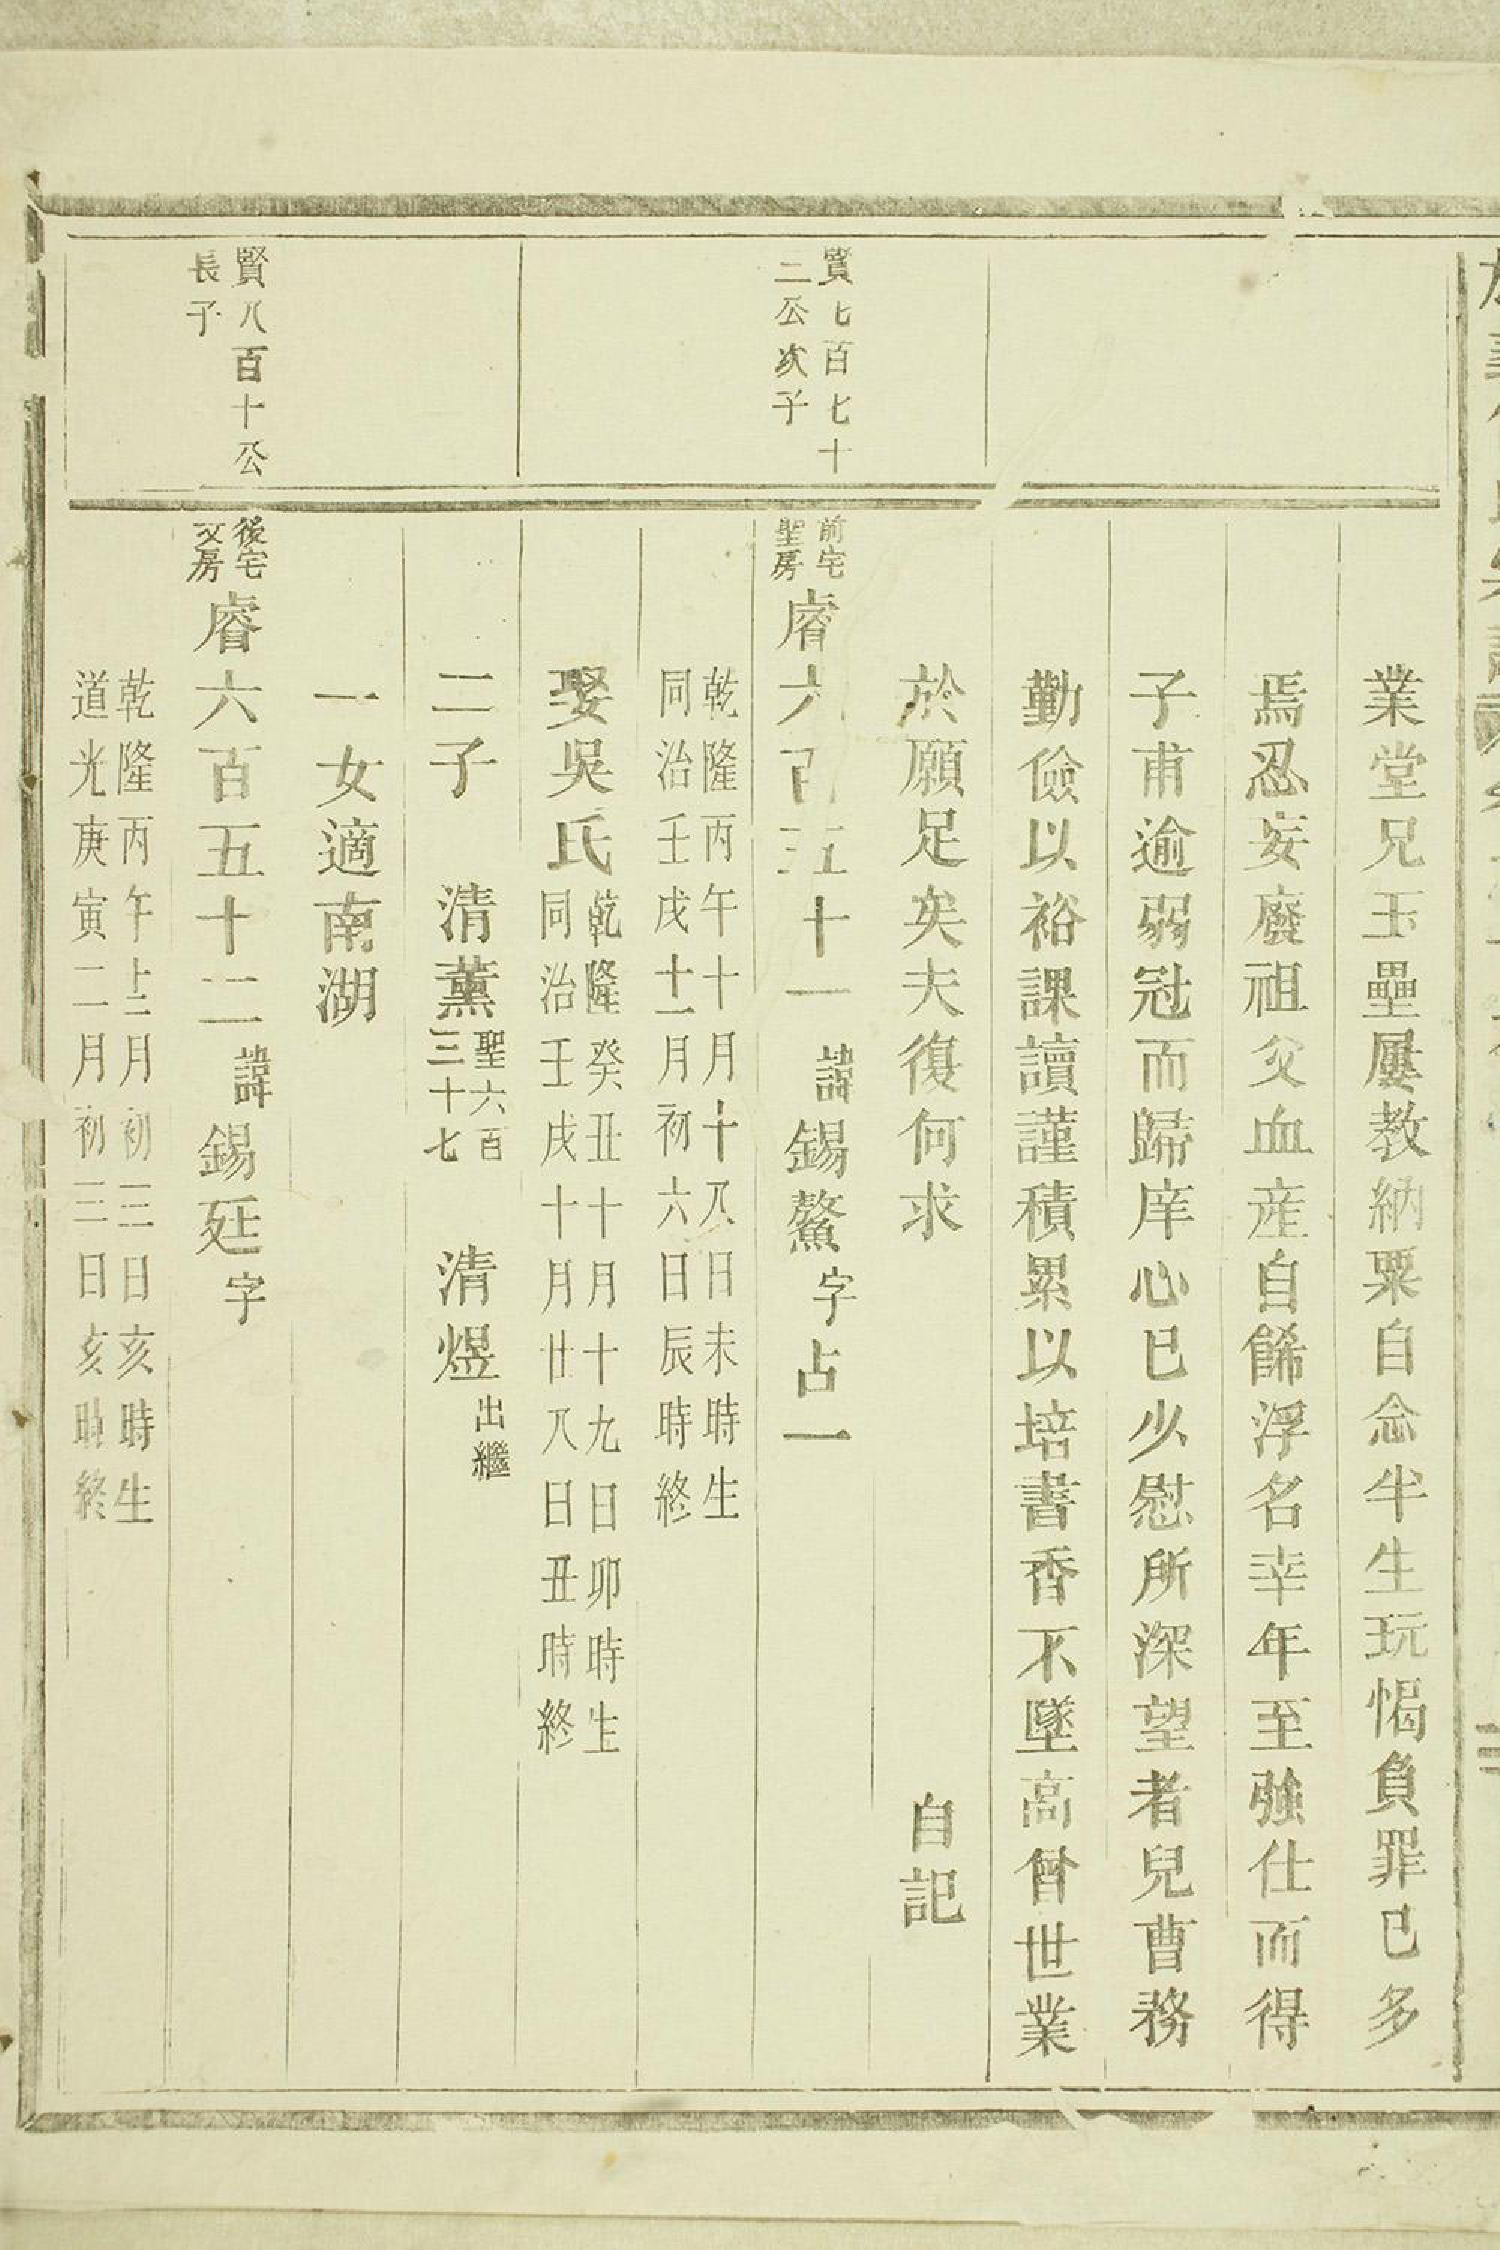 業堂兄玉壘屢教納粟自念半生玩愒負罪已多
焉忍妄廢祖父血産自餙浮名幸年至強仕而得
子甫逾弱冠而歸庠心已少慰所深望者兒曹務
勤儉以裕課讀謹積累以培書香不墜高曾世業
於願足矣夫復何求
自記
賢七百七十
二公次子
前宅
聖房
睿六百五十一 諱錫鰲字占一
乾隆丙午十月十八日未時生
同治壬戌十一月初六日辰時終
娶吳氏
乾隆癸丑十月十九日卯時生
同治壬戌十月廿八日丑時終
二子 清薰 聖六百三十七 清煜 出繼
一女適南湖
賢八百十公
長子
後宅
文房
睿六百五十二 諱錫廷字
乾隆丙午十二月初三日亥時生
道光庚寅二月初三日亥時終